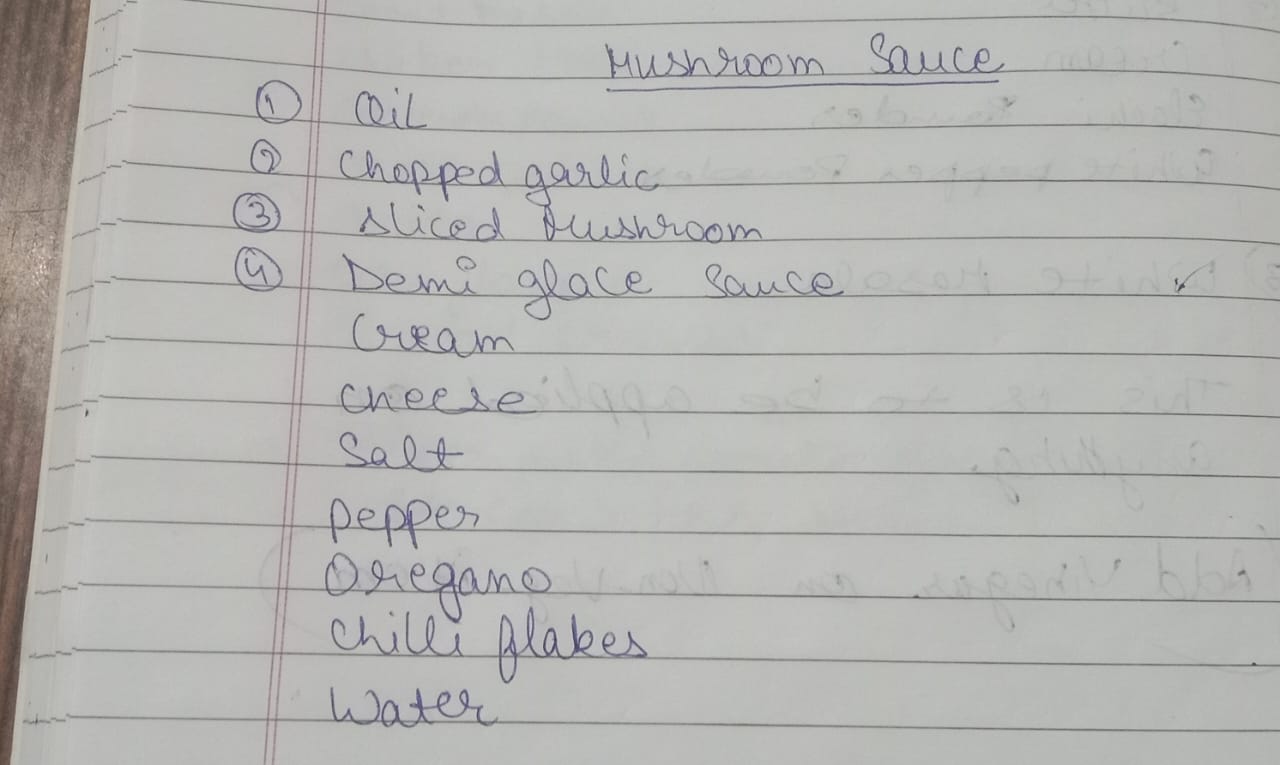 Mushroom Sauce
① Oil
② Chopped garlic
③ Sliced Mushroom
④ Demi glace Sauce
Cream
Cheese
Salt
Pepper
Oregano
Chilli flakes
Water